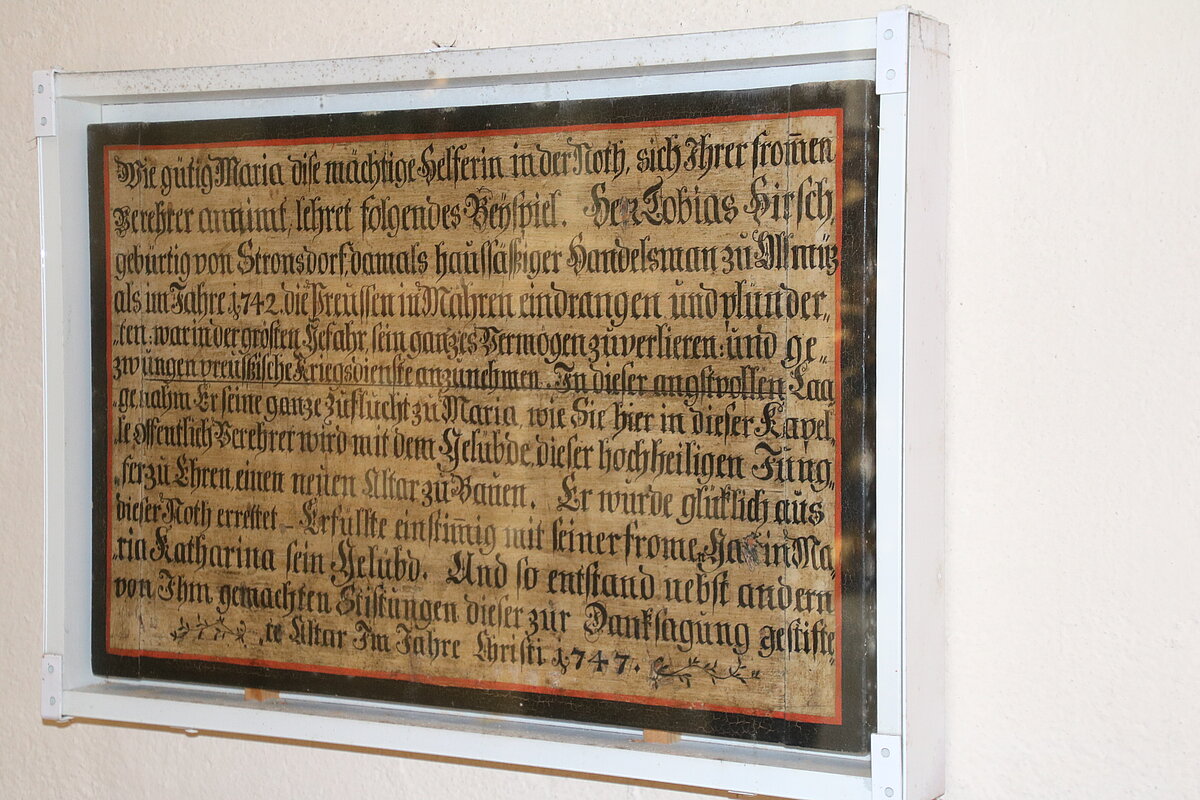 Wie gütig Maria dise mächtige Helferin in der Noth, sich Ihrer from̄en
Verehrer annimt, lehret folgendes Beÿspiel. Herr Tobias Hirsch,
gebürtig von Stronsdorf, damals haussässiger Handelsman zu Ollmütz
als im Jahre 1742. die Preussen in Mähren eindrangen und plünder„
„ten: war in der grösten Gefahr, sein ganzes Vermögen zu verlieren: und ge„
zwungen preussische Kriegsdienste anzunehmen. In dieser angstvollen Laa„
„ge nahm Er seine ganze Zuflucht zu Maria, wie Sie hier in dieser Kapel„
le öffentlich Verehrer wird mit dem Gelübde, dieser hochheiligen Jung„
„fer zu Ehren einen neuen Altar zu Bauen. Er wurde glüklich aus
dieser Noth errettet Erfüllte einstim̄ig mit seiner frome Gattin Ma„
„ria Katharina sein Gelübd. Und so entstand nebst andern
von Ihm gemachten Stiftungen dieser zur Danksagung gestifte„
„te Altar Im Jahre Christi 1747.